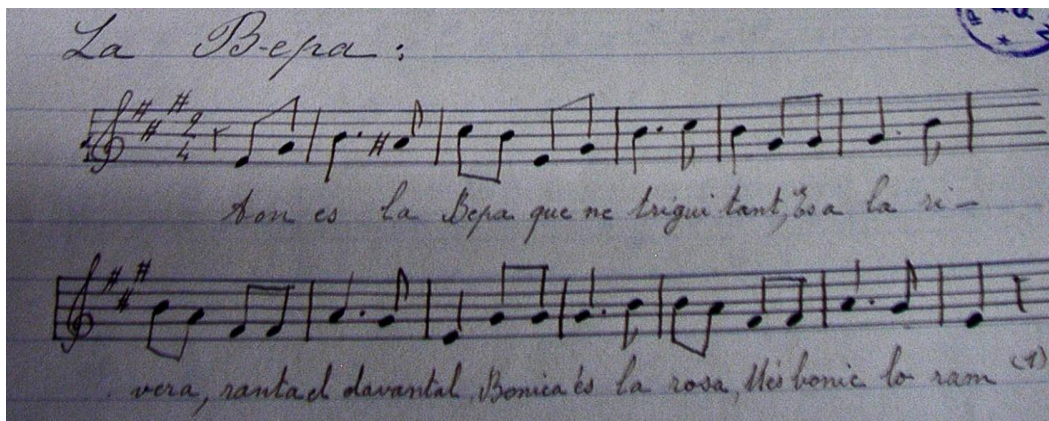 La Bepa:
2
4
Aon es la Bepa que ne trigui tant, Es a la ri-
vera, rantael davantal Bonica és la rosa, Més bonic lo ram (1)